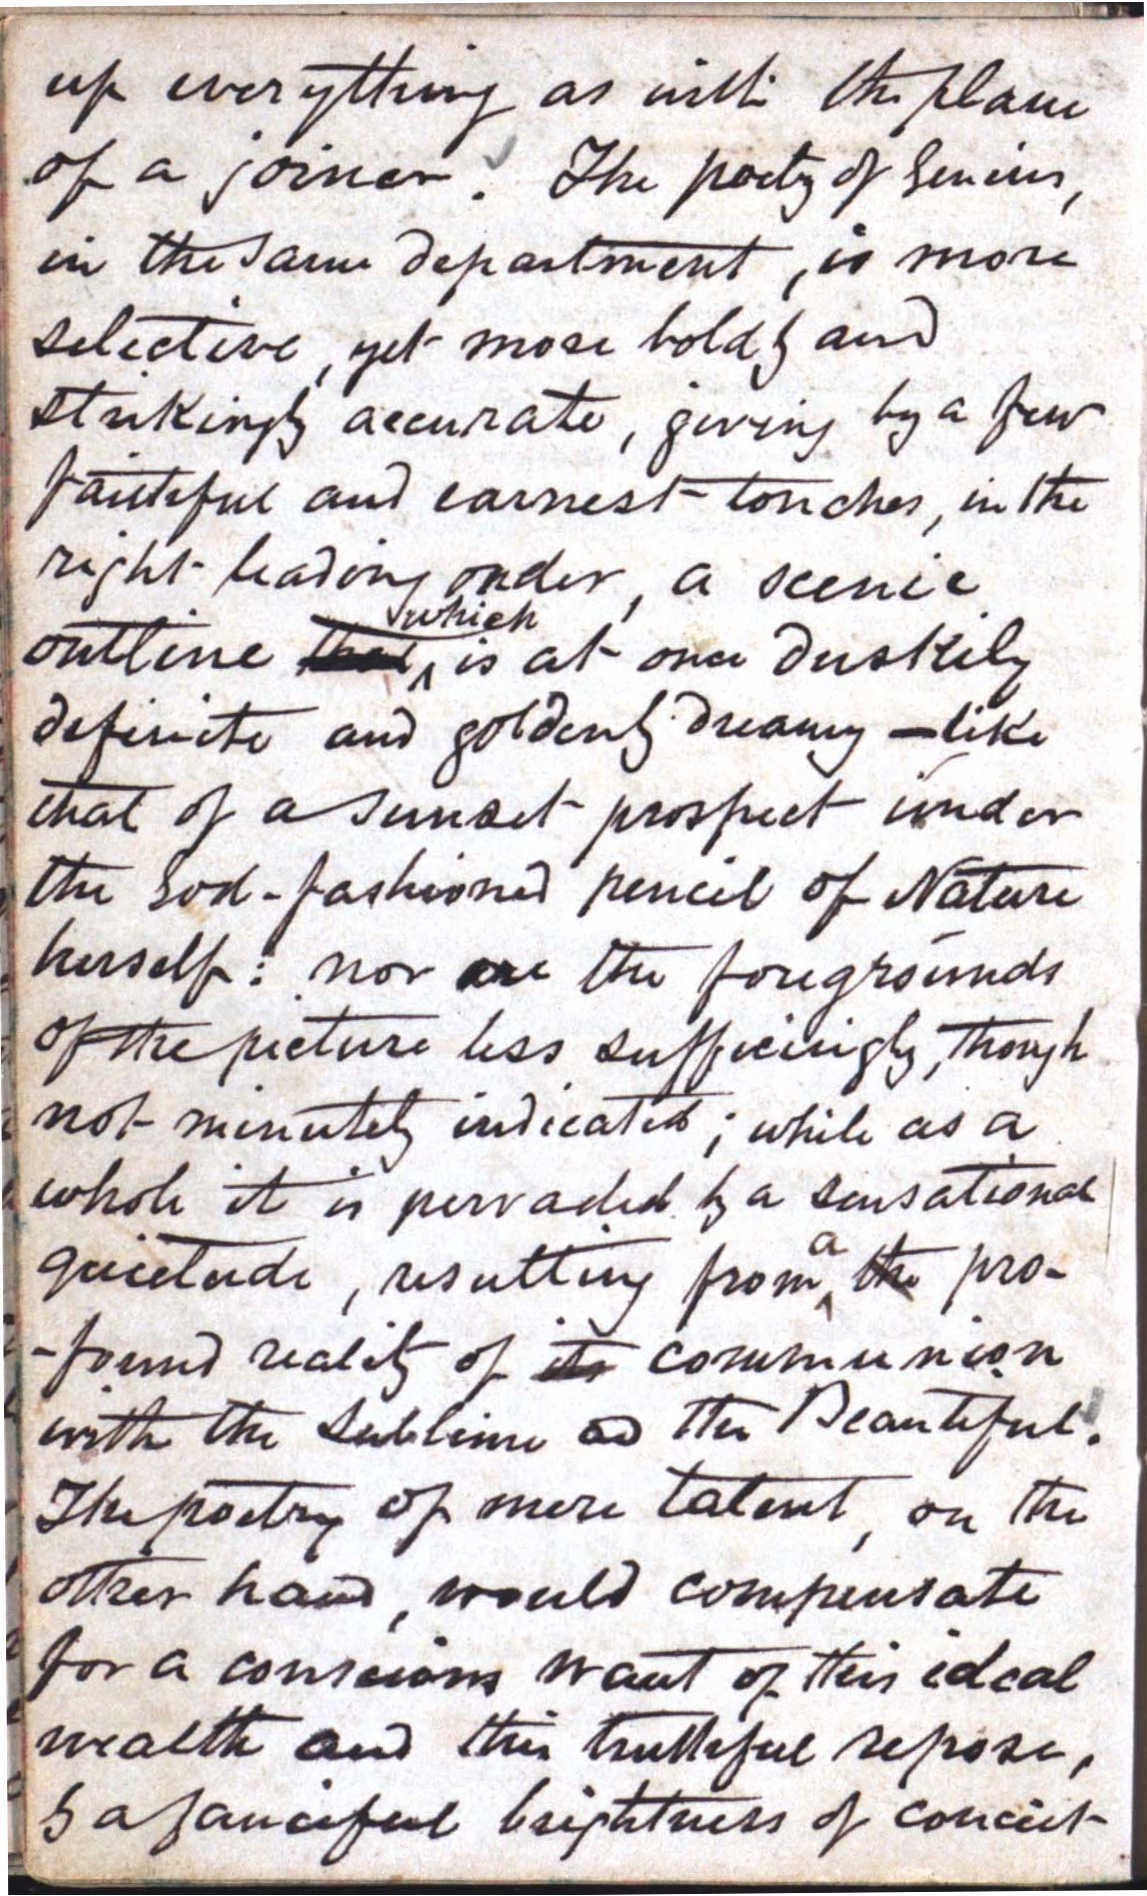 up everything as with the plane
of a joiner. The poetry of Genius,
in the same department, is more
selective, yet more boldly and
strikingly accurate, giving by a few
faithful and earnest touches, in the
right leading order, a scenic
outline that which is at once duskily
definite and goldenly dreamy — like
that of a sunset prospect under
the God-fashioned pencil of Nature
herself: nor are the foregrounds
of the picture less sufficingly, though
not minutely indicated; while as a
whole it is pervaded by a sensational
quietude, resulting from a the pro-
-found reality of its communion
with the Sublime and the Beautiful.
The poetry of mere talent, on the
other hand, would compensate
for a conscious want of this ideal
wealth and this truthful repose,
by a fanciful brightness of conceit